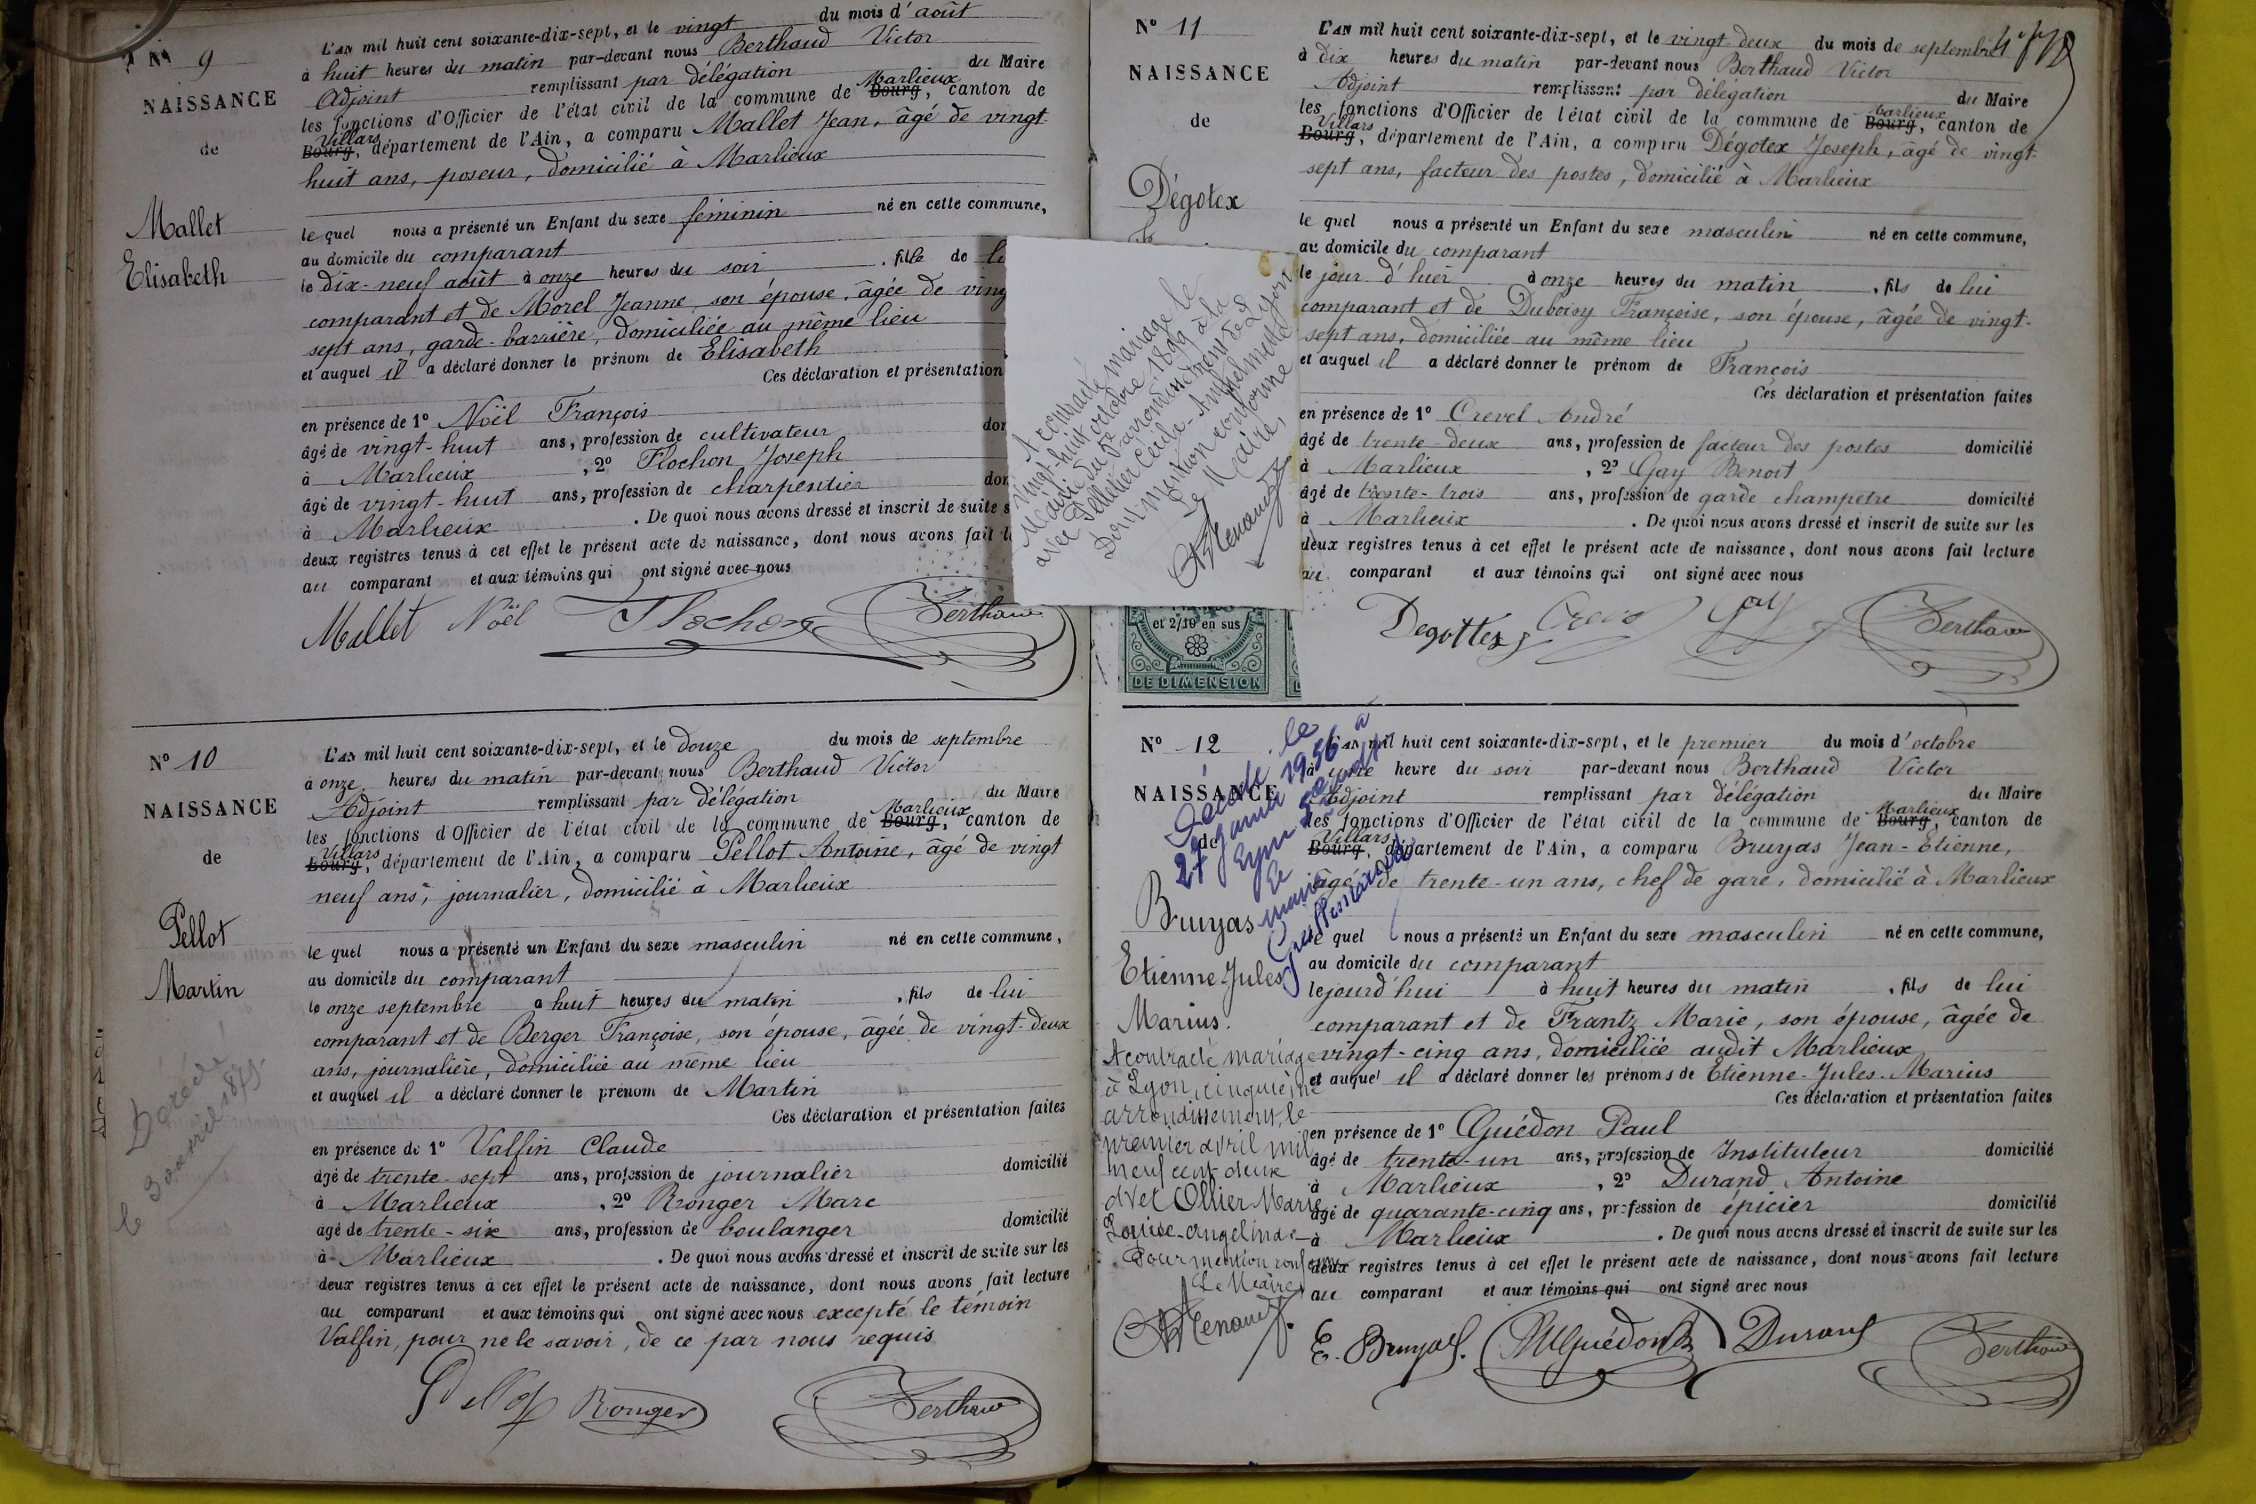 Nº 9
NAISSANCE
de
Mallet
Elisabeth
L'AN mil huit cent soixante-dix-sept, et le vingt du mois d'août
à huit heures du matin par-devant nous Berthaud Victor
Adjoint remplissant par délégation du Maire
les fonctions d'Officier de l'état civil de la commune de Bourg Marlieux, canton de
Bourg Villars, département de l'Ain, a comparu Mallet Jean, âgé de vingt-
huit ans, poseur, domicilié à Marlieux
le quel nous a présenté un Enfant du sexe féminin né en cette commune,
au domicile du comparant
le dix-neuf août à onze heures du soir, fille de
comparant et de Morel Jeanne, son épouse, âgée de
sept ans, garde-barrière, domiciliée au même lieu
et auquel il a déclaré donner le prénom de Elisabeth
Ces déclaration et présentation
en présence de 1º Noël François
âgé de vingt-huit ans, profession de cultivateur
à Marlieux, 2º Flochon Joseph
âgé de vingt-huit ans, profession de charpentier
à Marlieux. De quoi nous avons dressé et inscrit de suite
deux registres tenus à cet effet le présent acte de naissance, dont nous avons fait
au comparant et aux témoins qui ont signé avec nous
Mallet Noël Flochon Berthaud
Nº 10
NAISSANCE
de
Pellot
Martin
Décédé
le 3 avril 1875.
L'AN mil huit cent soixante-dix-sept, et le douze du mois de septembre
à onze heures du matin par-devant nous Berthaud Victor
Adjoint remplissant par délégation du Maire
les fonctions d'Officier de l'état civil de la commune de Bourg Marlieux, canton de
Bourg Villars, département de l'Ain, a comparu Pellot Antoine, âgé de vingt
neuf ans, journalier, domicilié à Marlieux
le quel nous a présenté un Enfant du sexe masculin né en cette commune,
au domicile du comparant
le onze septembre à huit heures du matin, fils de lui
comparant et de Berger Françoise, son épouse, âgée de vingt-deux
ans, journalière, domiciliée au même lieu
et auquel il a déclaré donner le prénom de Martin
Ces déclaration et présentation faites
en présence de 1º Valfin Claude
âgé de trente-sept ans, profession de journalier domicilié
à Marlieux, 2º Ronger Marc
âgé de trente-six ans, profession de boulanger domicilié
à Marlieux. De quoi nous avons dressé et inscrit de suite sur les
deux registres tenus à cet effet le présent acte de naissance, dont nous avons fait lecture
au comparant et aux témoins qui ont signé avec nous excepté le témoin
Valfin, pour ne le savoir, de ce par nous requis
Pellot Ronger Berthaud
A contracté mariage le
vingt-huit octobre 1899 à la
Mairie du 2e arrondissement de Lyon
avec Pelletier Cécile-
Pour mention conforme
Le Maire,
et 2/10 en sus
DE DIMENSION
Nº 11
NAISSANCE
de
Dégotex
L'AN mil huit cent soixante-dix-sept, et le vingt-deux du mois de septembre
à dix heures du matin par-devant nous Berthaud Victor
Adjoint remplissant par délégation du Maire
les fonctions d'Officier de l'état civil de la commune de Bourg Marlieux, canton de
Bourg Villars, département de l'Ain, a comparu Dégotex Joseph, âgé de vingt-
sept ans, facteur des postes, domicilié à Marlieux
le quel nous a présenté un Enfant du sexe masculin né en cette commune,
au domicile du comparant
le jour d'hier à onze heures du matin, fils de lui
comparant et de Duboisy Françoise, son épouse, âgée de vingt-
sept ans, domiciliée au même lieu
et auquel il a déclaré donner le prénom de François
Ces déclaration et présentation faites
en présence de 1º Crevel André
âgé de trente-deux ans, profession de facteur des postes domicilié
à Marlieux, 2º Gay Benoit
âgé de trente-trois ans, profession de garde champêtre domicilié
à Marlieux. De quoi nous avons dressé et inscrit de suite sur les
deux registres tenus à cet effet le présent acte de naissance, dont nous avons fait lecture
au comparant et aux témoins qui ont signé avec nous
Degottex Gay Berthaud
Nº 12
NAISSANCE
de
Bruyas
Etienne-Jules
Marius.
Décédé le
27 janvier 1956 à
Le
maire
A contracté mariage
à Lyon, cinquième
arrondissement, le
premier avril mil
neuf cent deux
avec Ollier Marie
Louise-Angelina-
Pour mention conforme
Le Maire
L'AN mil huit cent soixante-dix-sept, et le premier du mois d'octobre
à une heure du soir par-devant nous Berthaud Victor
Adjoint remplissant par délégation du Maire
les fonctions d'Officier de l'état civil de la commune de Bourg Marlieux, canton de
Bourg Villars, département de l'Ain, a comparu Bruyas Jean-Etienne,
âgé de trente-un ans, chef de gare, domicilié à Marlieux
le quel nous a présenté un Enfant du sexe masculin né en cette commune,
au domicile du comparant
le jourd'hui à huit heures du matin, fils de lui
comparant et de Frantz Marie, son épouse, âgée de
vingt-cinq ans, domiciliée audit Marlieux
et auquel il a déclaré donner les prénoms de Etienne-Jules-Marius
Ces déclaration et présentation faites
en présence de 1º Guédon Paul
âgé de trente-un ans, profession de Instituteur domicilié
à Marlieux, 2º Durand Antoine
âgé de quarante-cinq ans, profession de épicier domicilié
à Marlieux. De quoi nous avons dressé et inscrit de suite sur les
deux registres tenus à cet effet le présent acte de naissance, dont nous avons fait lecture
au comparant et aux témoins qui ont signé avec nous
E. Bruyas. Guédon Durand Berthaud